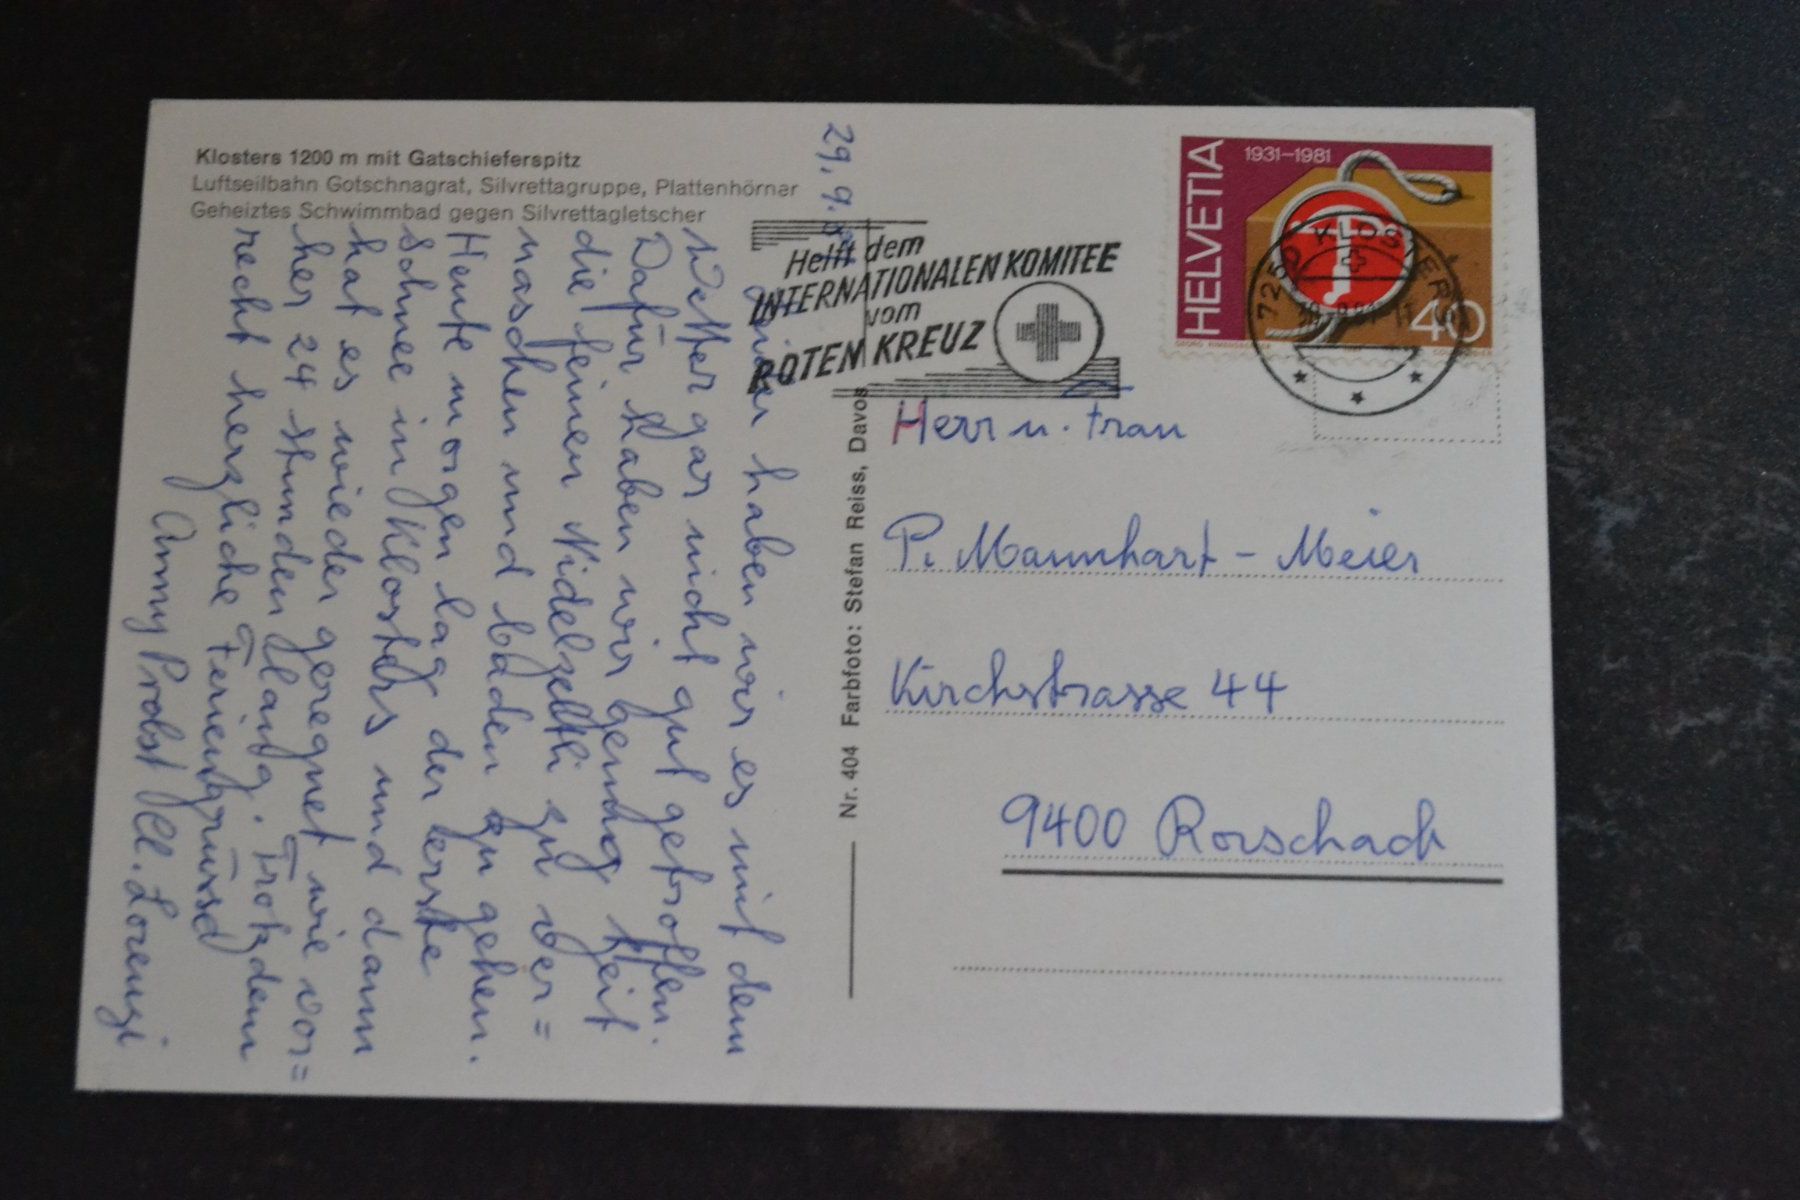 Klosters 1200 m mit Gatschieferspitz
Luftseilbahn Gotschnagrat, Silvrettagruppe, Plattenhörner
Geheiztes Schwimmbad gegen Silvrettagletscher
29. 9.
haben wir es mit dem
Wetter gar nicht gut getroffen.
Dafür haben wir genug Zeit
die feinen Nidelzeltli zu ver=
naschen und baden zu gehen.
Heute morgen lag der erste
Schnee in Klosters und dann
hat es wieder geregnet wie vor=
her 24 Stunden lang. Trotzdem
recht herzliche Feriengrüsse
Anny Probst M. Lorenzi
Nr. 404 Farbfoto: Stefan Reiss, Davos
Helft dem
INTERNATIONALEN KOMITEE
vom
ROTEN KREUZ
HELVETIA
1931–1981
40
7250 KLOSTERS
Herr u. Frau
P. Mannhart - Meier
Kirchstrasse 44
9400 Rorschach